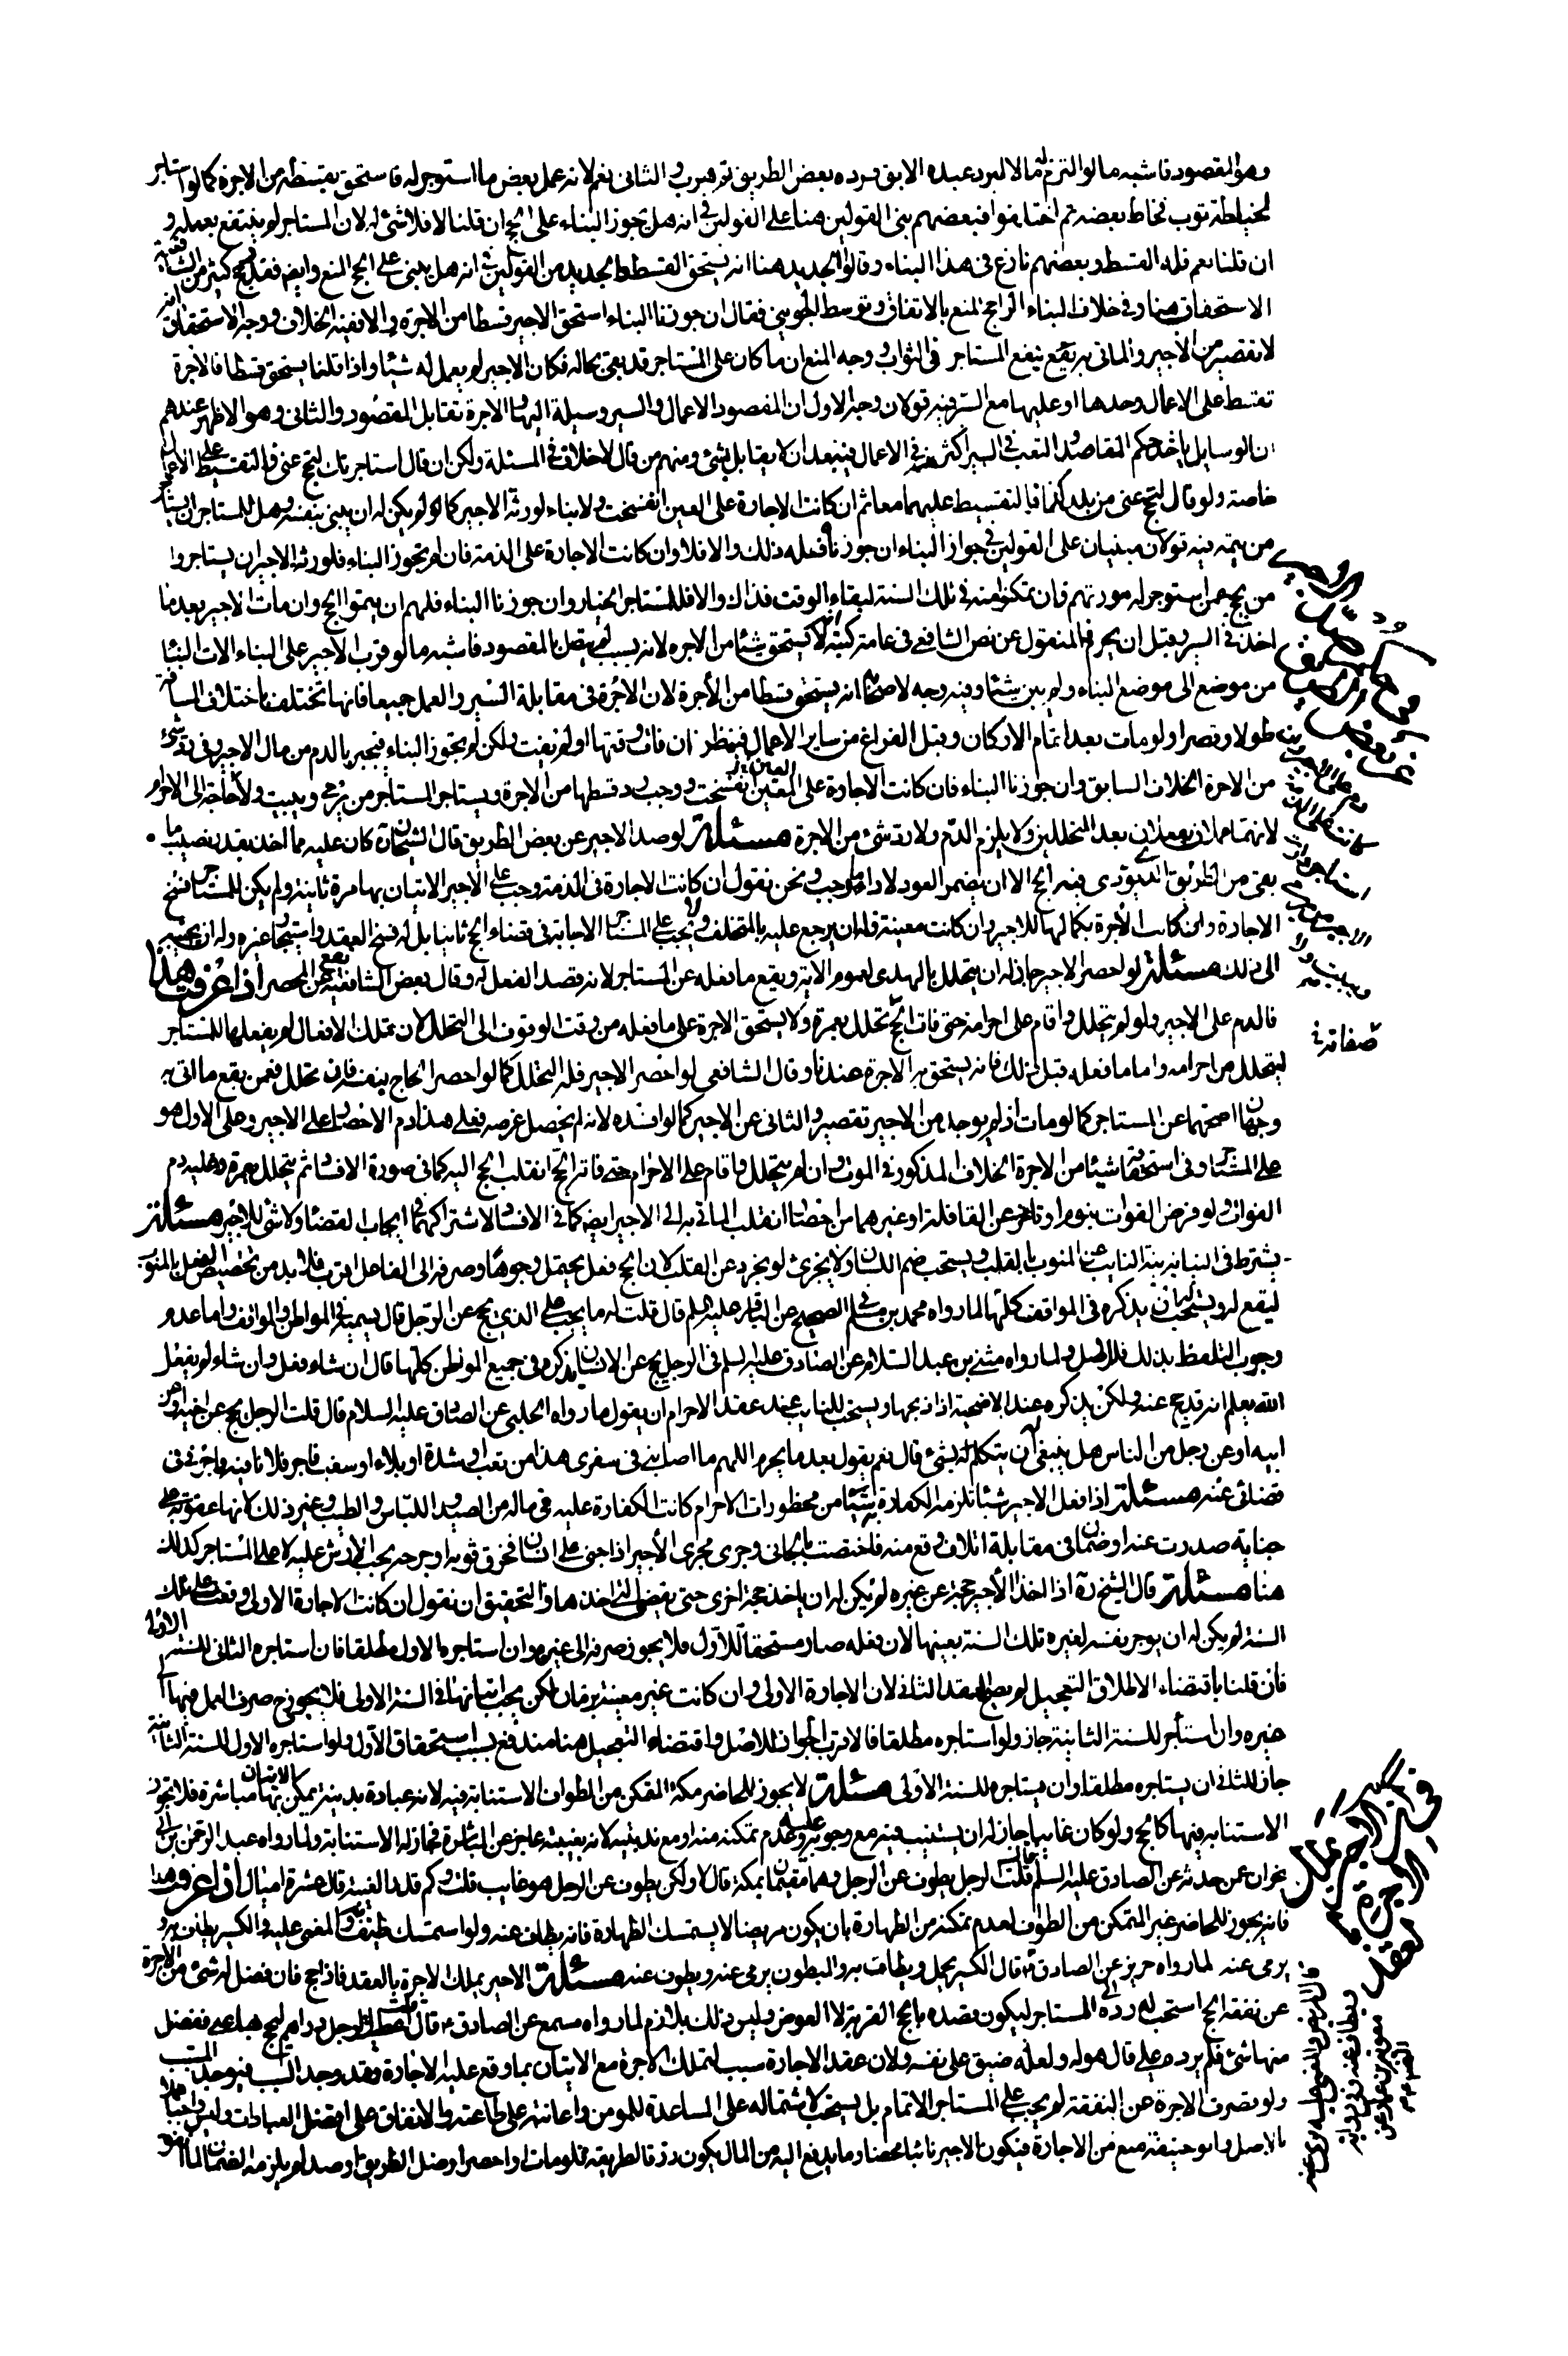 وهو المقصود فاشبه ما لو التزم له مالا ليرد عبده الابق فرده بعض الطريق ثم هرب والثانى نعم لانه عمل بعض ما استوجر له فاستحق بقسطه من الاجرة كما لو استاجر
لخياطة ثوب فخاط بعضه ثم اختلفوا فبعضهم بنى القولين هنا على القولين فى انه هل يجوز البناء على الحج ان قلنا لا فلا شئ له لان المستاجر لم ينتفع بعمله و
ان قلنا نعم فله القسط وبعضهم نازع فى هذا البناء وقالوا الجديد هنا انه يستحق القسط والجديد من القولين ثم انه هل يبنى على الحج المنع وايضه فقد رجح كثير من الشافعية
الاستحقاق هنا وفى خلاف البناء الراجح المنع بالاتفاق وتوسط الجوينى فقال ان جوزنا البناء استحق الاجير قسطا من الاجرة والا ففيه الخلاف ووجه الاستحقاق انه
لا تقصير من الاجير والماتى به يقع ينفع المستاجر فى الثواب ووجه المنع ان ما كان على المستاجر قد بقى بحاله فكان الاجير لم يعمل له شيئا واذا قلنا يستحق قسطا فالاجرة
تقسط على الاعمال وحدها او عليها مع السير فيه قولان وجه الاول ان المقصود الاعمال والسير وسيلة اليها والاجرة تقابل المقصود والثانى وهو الاظهر عندهم
ان الوسايل ياخذ حكم المقاصد والتعب فى السير اكثر منه فى الاعمال فيبعد ان لا يقابل بشئ ومنهم من قال لا خلاف فى المسئلة ولكن ان قال استاجرتك لتحج عنى فالتقسيط على الاعمال
خاصة ولو قال لتحج عنى من بلد كذا فالتقسيط عليهما معا ثم ان كانت الاجارة على العين انفسخت ولا بناء لورثة الاجير كما لو لم يكن له ان يبنى بنفسه وهل للمستاجر ان يستاجر
من يتمه فيه قولان مبنيان على القولين فى جواز البناء ان جوزناه فعله ذلك والا فلا وان كانت الاجارة على الذمة فان لم تجوز البناء فلورثة الاجير ان يستاجروا
من يحج عمن استوجر له مورثهم فان تمكنوا منه فى تلك السنة لبقاء الوقت فذاك والا فللمستاجر الخيار وان جوزنا البناء فلهم ان يتموا الحج وان مات الاجير بعد ما
اخذ فى السير وقبل ان يحرم فالمنقول عن نص الشافعى فى عامة كتبه انه لا يستحق شيئا من الاجرة لانه بسبب لم يتصل بالمقصود فاشبه ما لو قرب الاجير على البناء الات البناء
من موضع الى موضع البناء ولم يبن شيئا وفيه وجه لاصحابنا انه يستحق قسطا من الأجرة لان الاجرة فى مقابلة السير والعمل جميعا فانها تختلف باختلاف المسافة
طولا وقصرا ولو مات بعد اتمام الاركان وقبل الفراغ من ساير الاعمال فينظر ان فات وقتها او لم يفت ولكن لم يجوز البناء فيجبر بالدم من مال الاجير وفى رد شئ
من الاجرة الخلاف السابق وان جوزنا البناء فان كانت الاجارة على العين انفسخت ووجب رد قسطها من الاجرة ويستاجر المستاجر من يرمى ويبيت ولا حاجة الى الاحرام
لانهما عملان يفعلان بعد التحللين ولا يلزم الدم ولا رد شئ من الاجرة مسئلة لو صد الاجير عن بعض الطريق قال الشيخان كان عليه مما اخذ بقدر نصيب ما
بقى من الطريق الذى يؤدى فيه الحج الا ان يضمر العود لاداء ما وجب ونحن نقول ان كانت الاجارة فى الذمة وجب على الاجير الاتيان بها مرة ثانية ولم يكن للمستاجر فسخ
الاجارة وان كانت الأجرة بكمالها للاجير وان كانت معينة فله ان يرجع عليه بالمتخلف ولا يجب على المستاجر الاجابة فى قضاء الحج ثانيا بل له فسخ العقد واستيجار غيره وله ان يجيبه
الى ذلك مسئلة لو احصر الاجير جاز له ان يتحلل بالهدى لعموم الاية ويقع ما فعله عن المستاجر لانه قصد الفعل له وقال بعض الشافعية يقع عن المحصر اذا عرفت هذا
فالدم على الاجير ولو لم يتحلل واقام على احرامه حتى فات الحج تحلل بعمرة ولا يستحق الاجرة على ما فعله من وقت الوقوف الى التحلل لان تملك الافعال لم يفعلها للمستاجر
ليتحلل من احرامه واما ما فعله قبل ذلك فانه يستحق به الاجرة عندنا وقال الشافعى لو احصر الاجير فله التحلل كما لو احصر الحاج بنفسه فان تحلل فعمن يقع ما اتى به
وجهان اصحهما عن المستاجر كما لو مات اذ لم يوجد من الاجير تقصير والثانى عن الاجير كما لو افسده لانه لم يحصل غرضه فعلى هذا دم الاحصار على الاجير وعلى الاول هو
على المستاجر وفى استحقاقه شيئا من الاجرة الخلاف المذكور فى الموت وان لم يتحلل واقام على الاحرام حتى فاته الحج انقلب الحج اليه كما فى صورة الافساد ثم يتحلل بعمرة وعليه دم
الفوات ولو فرض الفوات بنوم او تاخر عن القافلة او غيرهما من غير احصار انقلب الماتى به الى الاجير ايضه كما فى الافساد لاشتراكهما فى ايجاب القضاء ولا شئ للاجير مسئلة
يشترط فى النيابة نية النايب عن المنوب بالقلب ويستحب ضم اللسان ولا يجزئ لو تجرد عن القلب لان الحج فعل يحتمل وجوها وصرفه الى الفاعل اقرب فلا بد من تخصيص الفعل بالمنوب
ليقع له ويستحب له ان يذكره فى المواقف كلها لما رواه محمد بن مسلم فى الصحيح عن الباقر عليه السلم قال قلت له ما يجب على الذى يحج عن الرجل قال يسميه فى المواطن والمواقف واما عدم
وجوب التلفظ بذلك فللاصل ولما رواه مثنى بن عبد السلام عن الصادق عليه السلم فى الرجل يحج عن الانسان يذكره فى جميع المواطن كلها قال ان شاء فعل وان شاء لم يفعل
الله يعلم انه قد حج عنه ولكن يذكره عند الاضحية اذا ذبحها ويستحب للنايب عند عقد الاحرام ان يقول ما رواه الحلبى عن الصادق عليه السلام قال قلت الرجل يحج عن اخيه او عن
ابيه او عن رجل من الناس هل ينبغى ان يتكلم بشئ قال نعم يقول بعد ما يحرم اللهم ما اصابنى فى سفرى هذا من تعب او شدة او بلاء او سغب فاجر فلانا فيه واجرنى فى
قضائى عنه مسئلة اذا فعل الاجير شيئا تلزمه الكفارة به من محظورات الاحرام كانت الكفارة عليه فى ماله من الصيد واللباس والطيب وغير ذلك لانها عقوبة على
جناية صدرت عنه او ضمان فى مقابلة اتلاف وقع منه فاختصت بالجانى وجرى مجرى الأجير اذا جنى على انسان فخرق ثوبه او جرحه يجب الارش عليه لا على المستاجر كذلك
هنا مسئلة قال الشيخ ره اذا اخذ الأجير حجة عن غيره لم يكن له ان ياخذ حجة اخرى حتى يقضى التى اخذها والتحقيق ان نقول ان كانت الاجارة الاولى وقعت على تلك
السنة لم يكن له ان يوجر نفسه لغيره تلك السنة بعينها لان فعله صار مستحقا للاول فلا يجوز صرفه الى غيره وان استاجره الاول مطلقا فان استاجره الثانى للسنة الاولى
فان قلنا باقتضاء الاطلاق التعجيل لم يصح العقد الثانى لان الاجارة الاولى وان كانت غير معينة بزمان لكن يجب اتيانها فى السنة الاولى فلا يجوز ح صرف العمل فيها الى
غيره وان استأجر للسنة الثانية جاز ولو استاجره مطلقا فالاقرب الجواز للاصل واقتضاء التعجيل هنا مندفع بسبب استحقاق الاول ولو استاجره الاول للسنة الثانية
جاز للثانى ان يستاجره مطلقا وان يستاجره للسنة الاولى مسئلة لا يجوز للحاضر مكة المتمكن من الطواف الاستنابة فيه لانه عبادة بدنية يمكن الاتيان بها مباشرة فلا تجوز
الاستنابة فيها كالحج ولو كان غايبا جاز له ان يستنيب فيه مع وجوبه عليه وعدم تمكنه منه او مع ندبيته لانه بغيبته عاجز عن المباشرة فجاز له الاستنابة ولما رواه عبد الرحمن بن ابى
نجران عمن حدثه عن الصادق عليه السلم قال قلت لرجل يطوف عن الرجل وهما مقيمان بمكة قال لا ولكن يطوف عن الرجل وهو غايب قلت وكم قدر الغيبة قال عشرة اميال اذا عرفت هذا
فانه يجوز للحاضر غير المتمكن من الطواف لعدم تمكنه من الطهارة بان يكون مريضا لا يستمسك الطهارة فانه يطاف عنه ولو استمسك طيف به والمغمى عليه والكسير يطاف به و
يرمى عنه لما رواه حريز عن الصادق ع قال الكسير يحمل ويطاف به والمبطون يرمى عنه ويطوف عنه مسئلة الاجير يملك الاجرة بالعقد فاذا حج فان فضل له شئ من الاجرة
عن نفقة الحج استحب له رده الى المستاجر ليكون قصده بالحج القربة لا العوض وليس ذلك بلازم لما رواه مسمع عن الصادق ع قال قلت اعطيت الرجل دراهم ليحج بها عنى ففضل
منها شئ فلم يرده على قال هو له ولعله ضيق على نفسه ولان عقد الاجارة سبب لتملك الاجرة مع الاتيان بما وقع عليه الاجارة وقد وجد السبب فيوجد المسبب
ولو قصرت الاجرة عن النفقة لم يجب على المستاجر الاتمام بل يستحب لاشتماله على المساعدة للمومن واعانته على طاعته والانفاق على افضل العبادات وليس واجبا عملا
بالاصل وابو حنيفة منع من الاجارة فيكون الاجير نائبا محضا وما يدفع اليه من المال يكون رزقا لطريقه فلو مات او احصر او ضل الطريق او صد لم يلزمه الضمان لما
صفاته